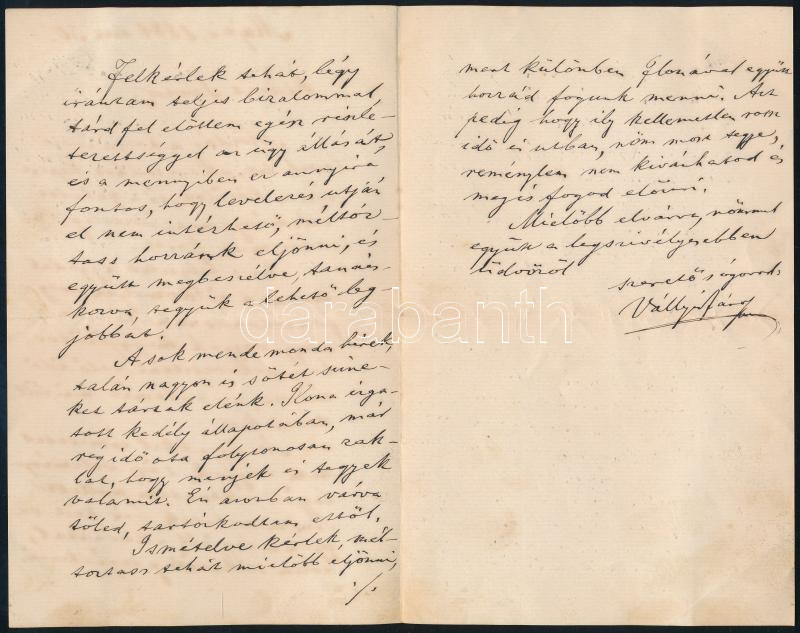 Felkérlek tehát, légy
irántam teljes bizalommal
tárd fel előttem egész részle-
tezettséggel az ügy állását,
és a mennyiben ez annyira
fontos, hogy levelezés utján
el nem intézhető, méltóz-
tass hozzánk eljönni, és
együtt megbeszélve, tanács-
kozva, tegyük a lehető leg-
jobbat.
A sok mende monda hirek,
talán nagyon is sötét szine-
ket tártak elénk. Ilona izga-
tott kedély állapotában, már
rég idő ota folytonosan zak-
lat, hogy menjek és tegyek
valamit. Én azonban várva
tőled, tartózkodtam ettől,
Ismételve kérlek, mél-
tóztass tehát mielőbb eljönni,
./.
mert különben Ilonával együtt
hozzád fogunk menni. Azt
pedig hogy ily kellemetlen rossz
idő és utban, nőm most tegye,
reménylem nem kivánhatod és
megis fogod előzni.
Mielőbb elvárva, nőmmel
együtt a legszivélyesebben
üdvözöl
szerető sógorod
Vállyi János
darabanth